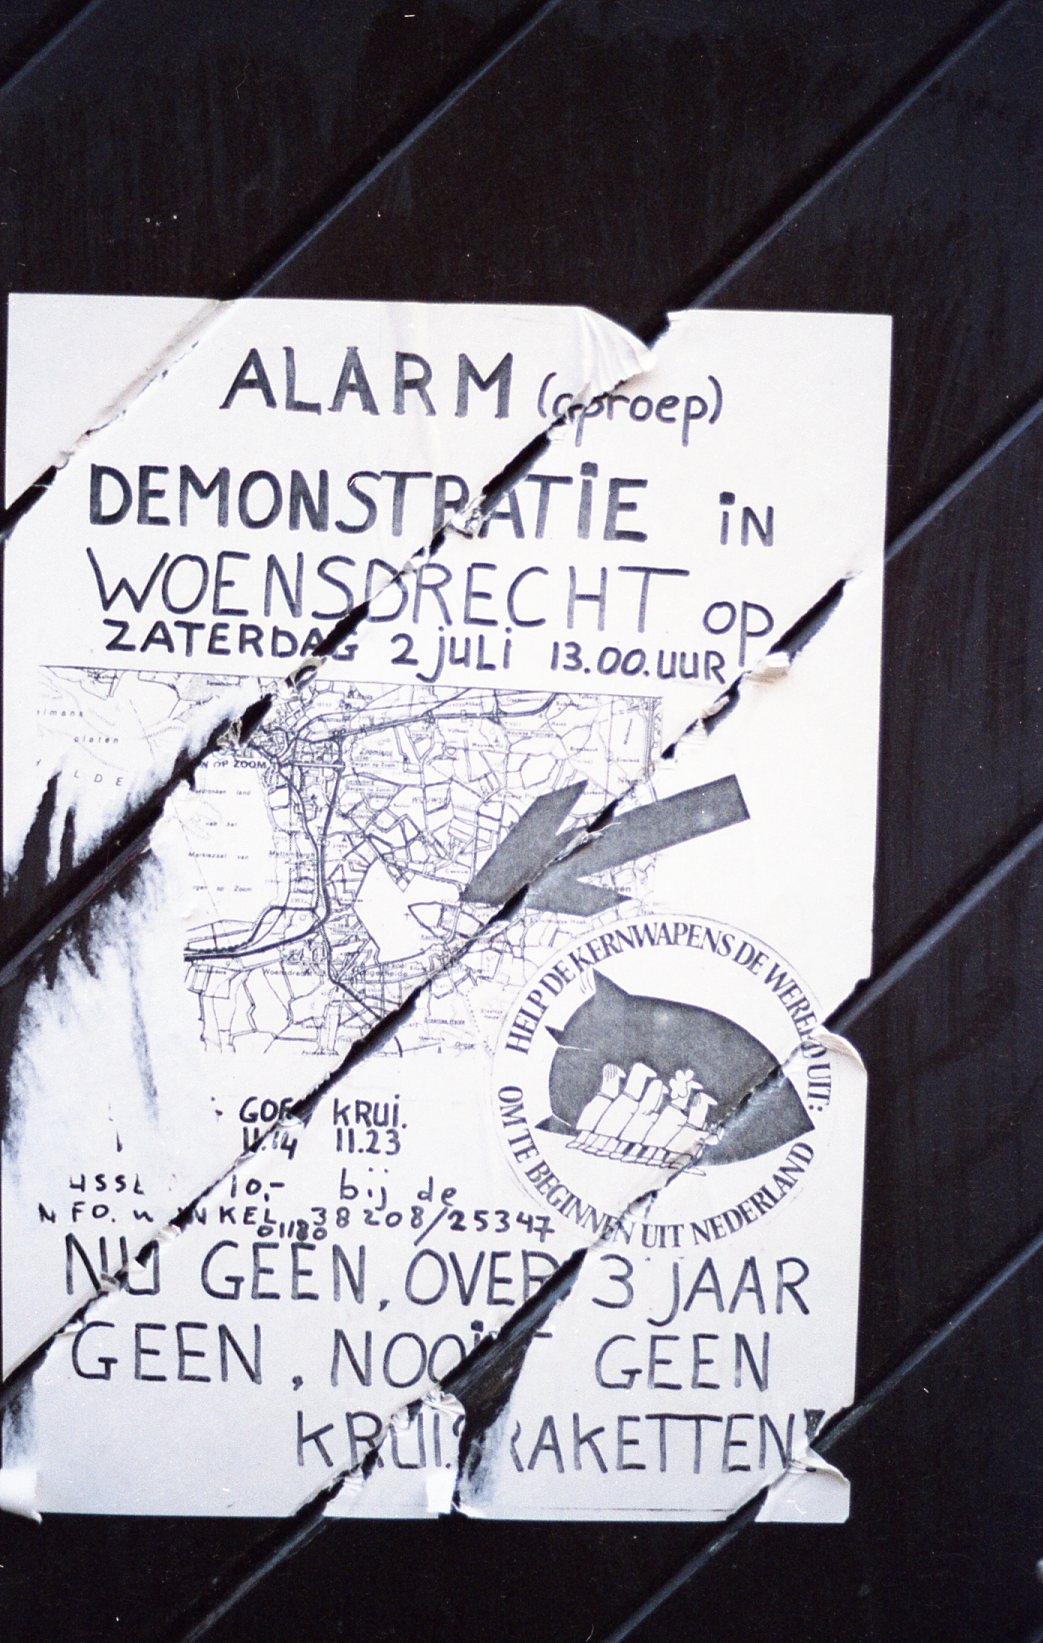 ALARM (oproep)
DEMONSTRATIE iN
WOENSDRECHT op
ZATERDAG 2 juLi 13.00.UUR
N OP ZOOM
HELP DE KERNWAPENS DE WERELD UIT:
OM TE BEGINNEN UIT NEDERLAND
KRUi.
11.14 11.23
10,- bij de
NFO. WINKEL 38208/25347
01180
NU GEEN, OVER 3 jAAR
GEEN, NOOiT GEEN
KRUISRAKETTEN!